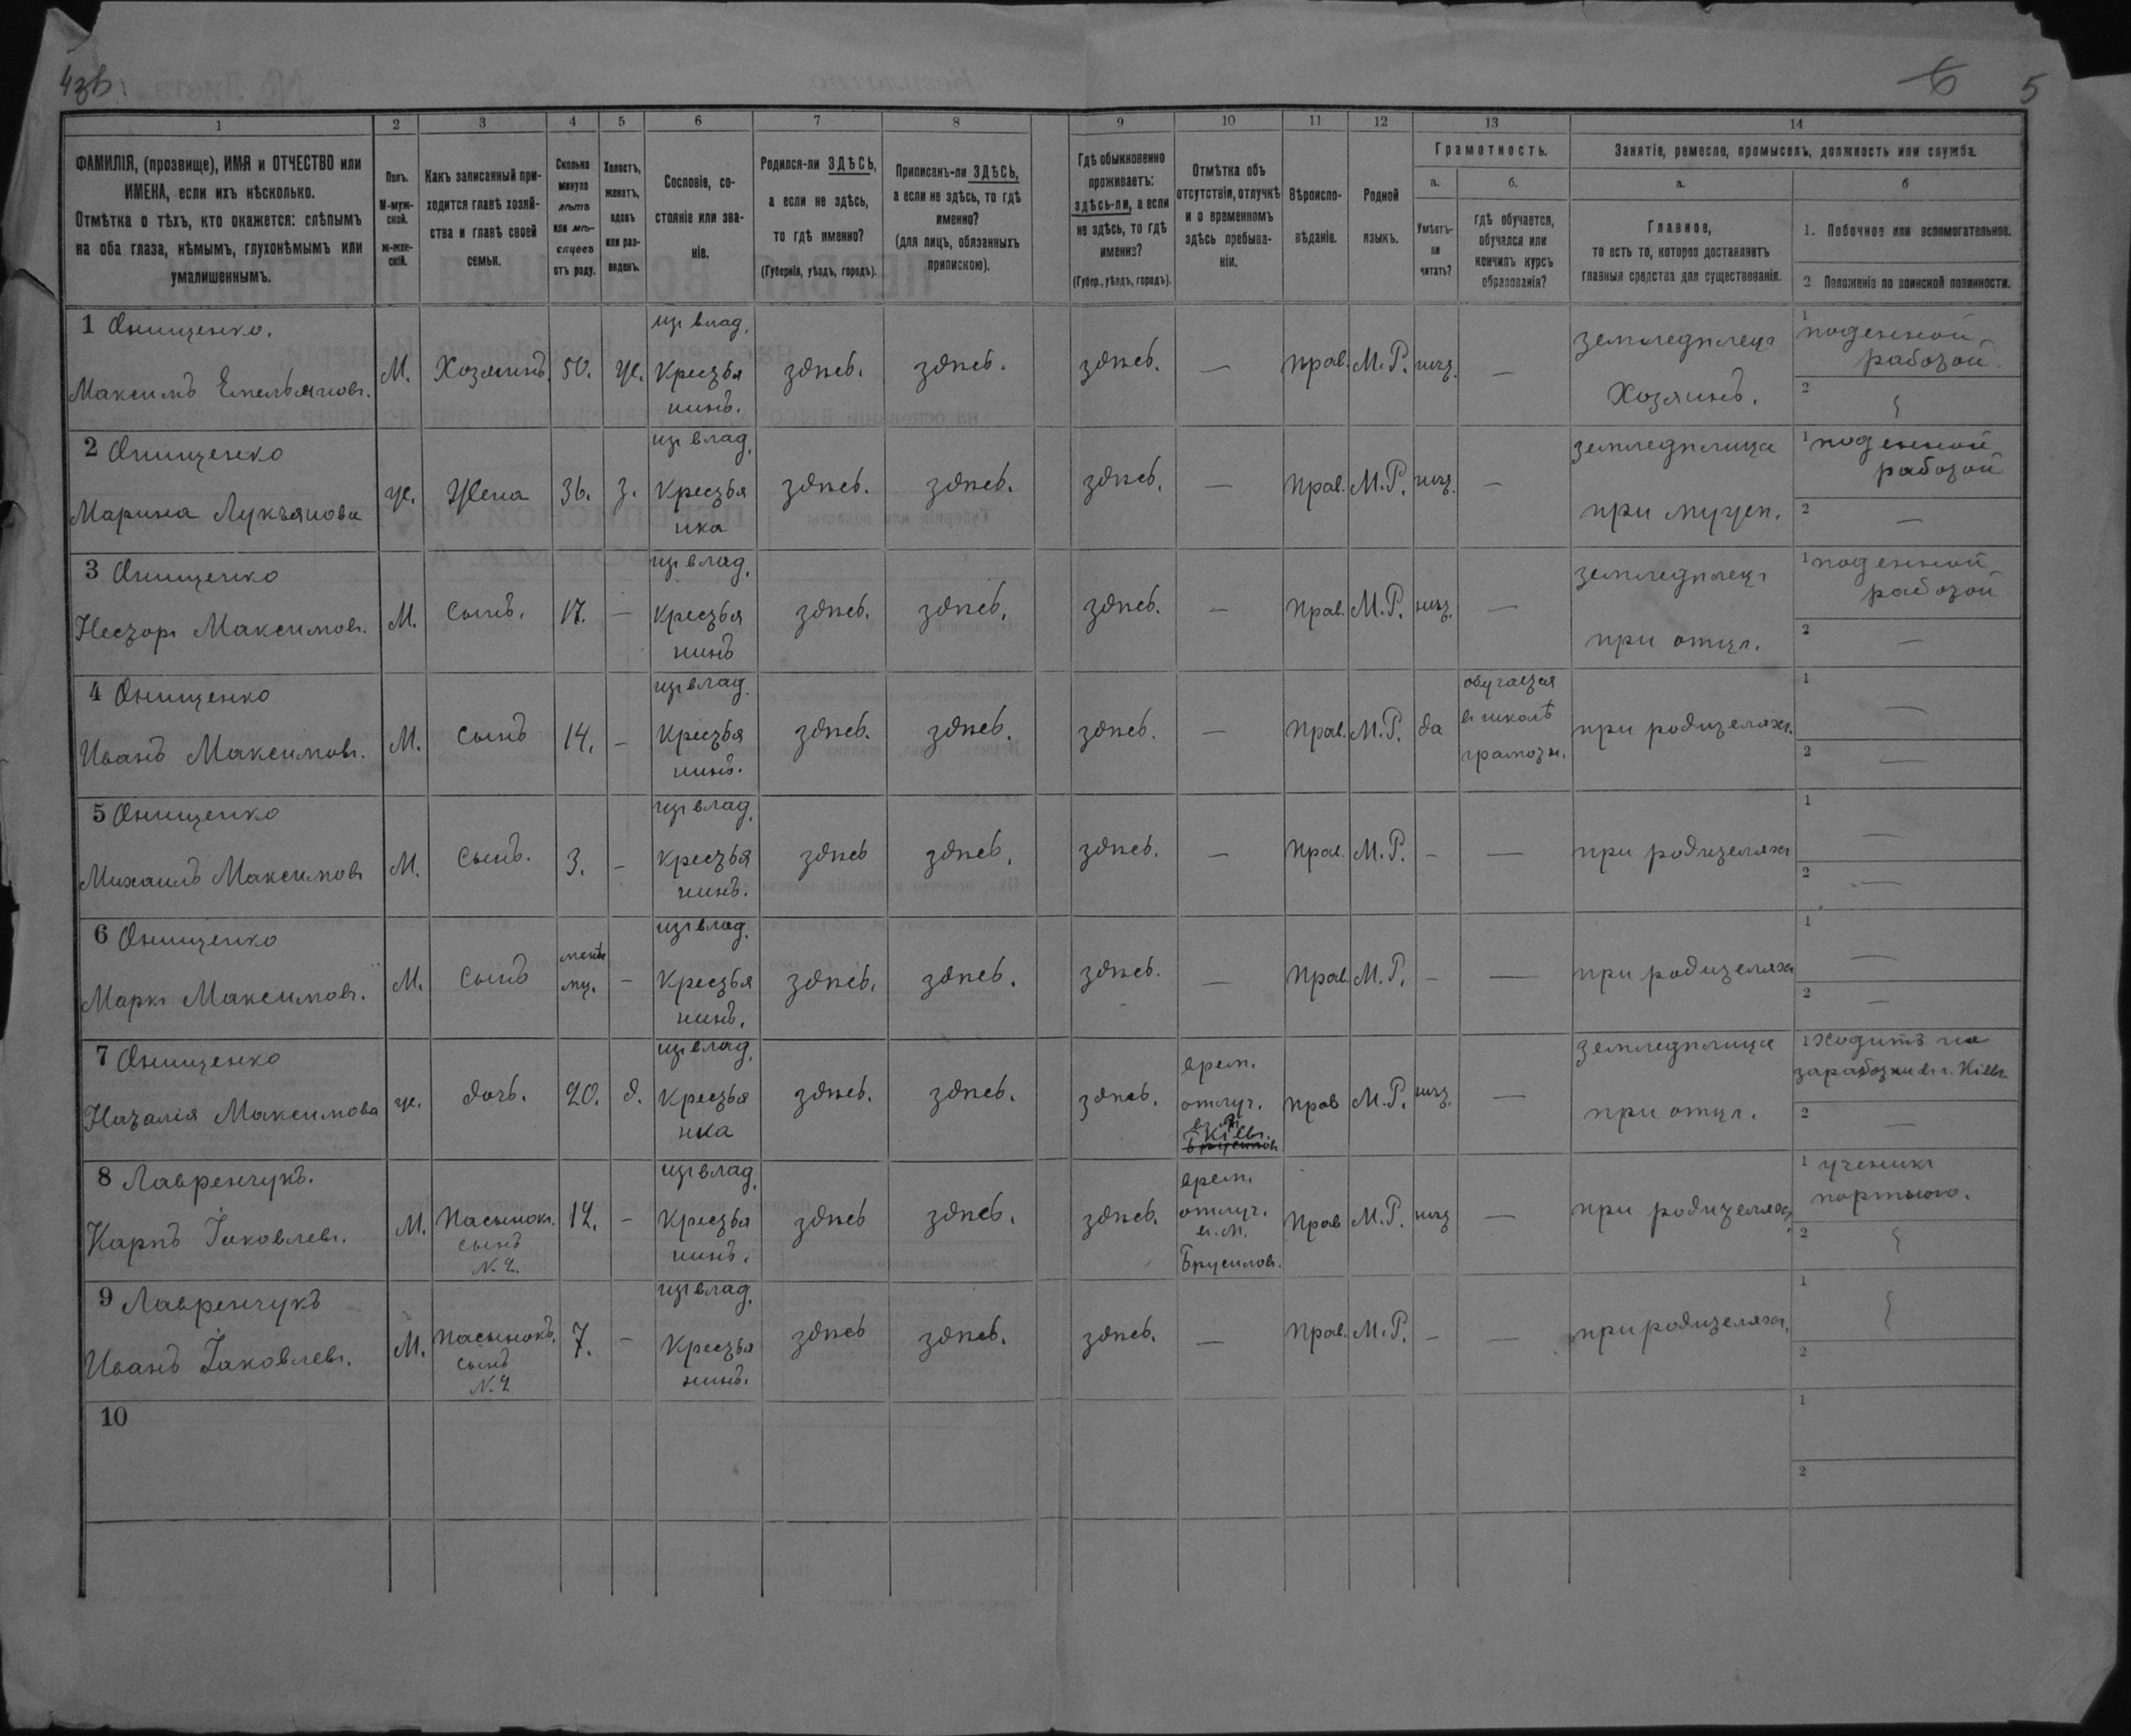 4зв.
6 5
1 2 3 4 5 6 7 8 9 10 11 12 13 14
ФАМИЛІЯ, (прозвище), ИМЯ и ОТЧЕСТВО или
ИМЕНА, если ихъ нѣсколько.
Отмѣтка о тѣхъ, кто окажется: слѣпымъ
на оба глаза, нѣмымъ, глухонѣмымъ или
умалишеннымъ.
Полъ.
М-муж-
ской.
ж-жен-
скій.
Какъ записанный при-
ходится главѣ хозяй-
ства и главѣ своей
семьи.
Сколько
минуло
лѣтъ
или мѣ-
сяцевъ
отъ роду.
Холостъ,
женатъ,
вдовъ
или раз-
веденъ.
Сословіе, со-
стояніе или зва-
ніе.
Родился-ли ЗДѢСЬ,
а если не здѣсь,
то гдѣ именно?
(Губернія, уѣздъ, городъ).
Приписанъ-ли ЗДѢСЬ,
а если не здѣсь, то гдѣ
именно?
(для лицъ, обязанныхъ
припискою).
Гдѣ обыкновенно
проживаетъ:
здѣсь-ли, а если
не здѣсь, то гдѣ
именно?
(Губер., уѣздъ, городъ).
Отмѣтка объ
отсутствіи, отлучкѣ
и о временномъ
здѣсь пребыва-
ніи.
Вѣроиспо-
вѣданіе.
Родной
языкъ.
Грамотность.
а. б.
Умѣетъ-
ли
читать?
гдѣ обучается,
обучался или
кончилъ курсъ
образованія?
Занятіе, ремесло, промыселъ, должность или служба.
а. б
Главное,
то есть то, которое доставляетъ
главныя средства для существованія.
1. Побочное или вспомогательное.
2 Положеніе по воинской повинности.
1 Онищенко.
Максимъ Емельяновъ.
М. Хозяинъ. 50. ж.
изъ влад.
Крестья
нинъ.
здѣсь. здѣсь. здѣсь. — прав. М.Р. нѣт. —
земледѣлецъ
Хозяинъ.
1 поденной
работой.
2
2 Онищенко
Марина Лукъянова
ж. Жена 36. з.
изъ влад.
Крестья
нка
здѣсь. здѣсь. здѣсь. — прав. М.Р. нѣт. —
земледѣлица
при мужѣ.
1 поденной
работой
2 —
3 Онищенко
Несторъ Максимовъ.
М. Сынъ. 17. —
изъ влад.
Крестья
нинъ
здѣсь. здѣсь. здѣсь. — прав. М.Р. нѣт. —
земледѣлецъ
при отцѣ.
1 поденной
работой
2 —
4 Онищенко
Иванъ Максимовъ.
М. Сынъ 14. —
изъ влад.
Крестья
нинъ.
здѣсь. здѣсь. здѣсь. — прав. М.Р. да
обучается
въ школѣ
грамотн.
при родителяхъ.
1 —
2 —
5 Онищенко
Михаилъ Максимовъ
М. Сынъ. 3. —
изъ влад.
крестья
нинъ.
здѣсь здѣсь. здѣсь. — прав. М.Р. — —
при родителяхъ
1 —
2 —
6 Онищенко
Маркъ Максимовъ.
М. Сынъ
мц. —
изъ влад.
Крестья
нинъ.
здѣсь. здѣсь. здѣсь. — прав. М.Р. — —
при родителяхъ
1 —
2 —
7 Онищенко
Наталія Максимова
ж. дочь. 20. д.
изъ влад.
Крестья
нка
здѣсь. здѣсь. здѣсь.
врем.
отлуч.
Кіевъ.
Брусиловъ
прав М.Р. нѣт. —
земледѣлица
при отцѣ.
1 Ходитъ на
заработки въ г. Кіевъ.
2 —
8 Лавренчукъ.
Карпъ Іаковлевъ.
М. Пасынокъ.
сынъ
N. 2.
12. —
изъ влад.
Крестья
нинъ.
здѣсь здѣсь. здѣсь.
врем.
отлуч.
в. м.
Брусиловъ.
прав М.Р. нѣт —
при родителяхъ.
1 ученикъ
портного.
2
9 Лавренчукъ
Иванъ Іаковлевъ.
М. Пасынокъ.
сынъ
N. 2
7. —
изъ влад.
Крестья
нинъ.
здѣсь здѣсь. здѣсь. — прав. М.Р. — —
при родителяхъ.
1
2
10
1
2